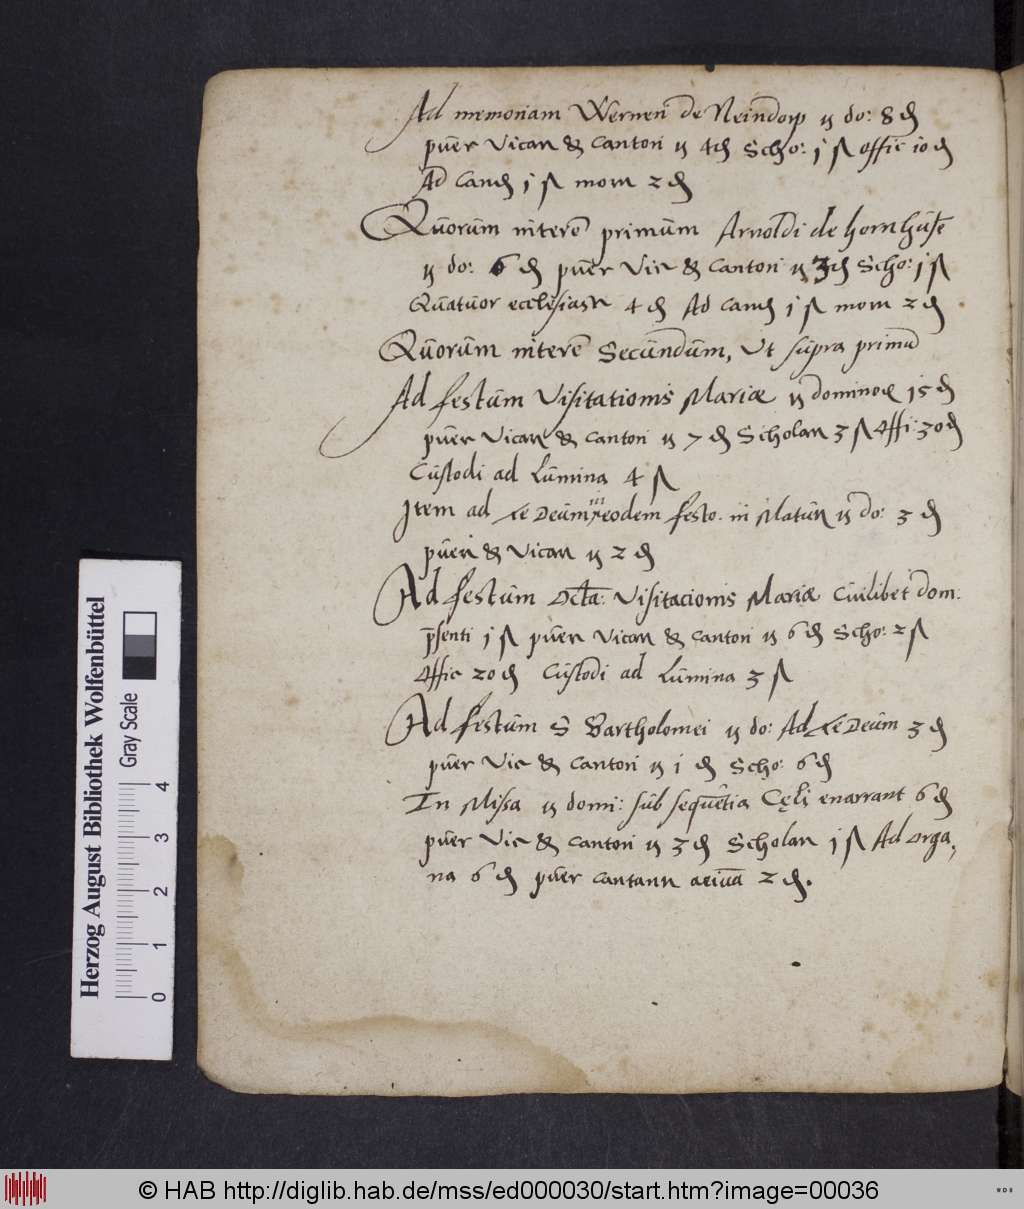 Ad memoriam Werneri de Neindorp ꝟ do: 8 ₰
puer Vicar & Cantori ꝟ 4 ₰ Scho: j ß offic 10 ₰
Ad Cand j ß morn 2 ₰
Quorum interē primum Arnoldi de hornhuse
ꝟ do: 6 ₰ puer Vic & Cantori ꝟ 3 ₰ Scho: j ß
Quatuor ecclesiastr 4 ₰ Ad Cand j ß morn 2 ₰
Quorum interē Secundum, Ut supra primū
Ad festum Visitationis Mariæ ꝟ dominoꝝ 15 ₰
puer Vicar & Cantori ꝟ 7 ₰ Scholar 3 ß Offi: 30 ₰
Custodi ad Lumina 4 ß
Item ad Te Deum in eodem festo. in Matur ꝟ do: 3 ₰
puer & Vicar ꝟ 2 ₰
Ad festum Octa: Visitacionis Mariæ Cuilibet dom:
p̄senti j ß puer Vicar & Cantori ꝟ 6 ₰ Scho: 2 ß
Offic 20 ₰ Custodi ad Lumina 3 ß
Ad festum S Bartholomei ꝟ do: Ad Te Deum 3 ₰
puer Vic & Cantori ꝟ j ₰ Scho: 6 ₰
In Missa ꝟ domi: sub sequētia Cęli enarrant 6 ₰
puer Vic & Cantori ꝟ 3 ₰ Scholar j ß Ad Orga,
na 6 ₰ puer cantann 2 ₰.
Herzog August Bibliothek Wolfenbüttel
Gray Scale
0 1 2 3 4
© HAB http://diglib.hab.de/mss/ed000030/start.htm?image=00036